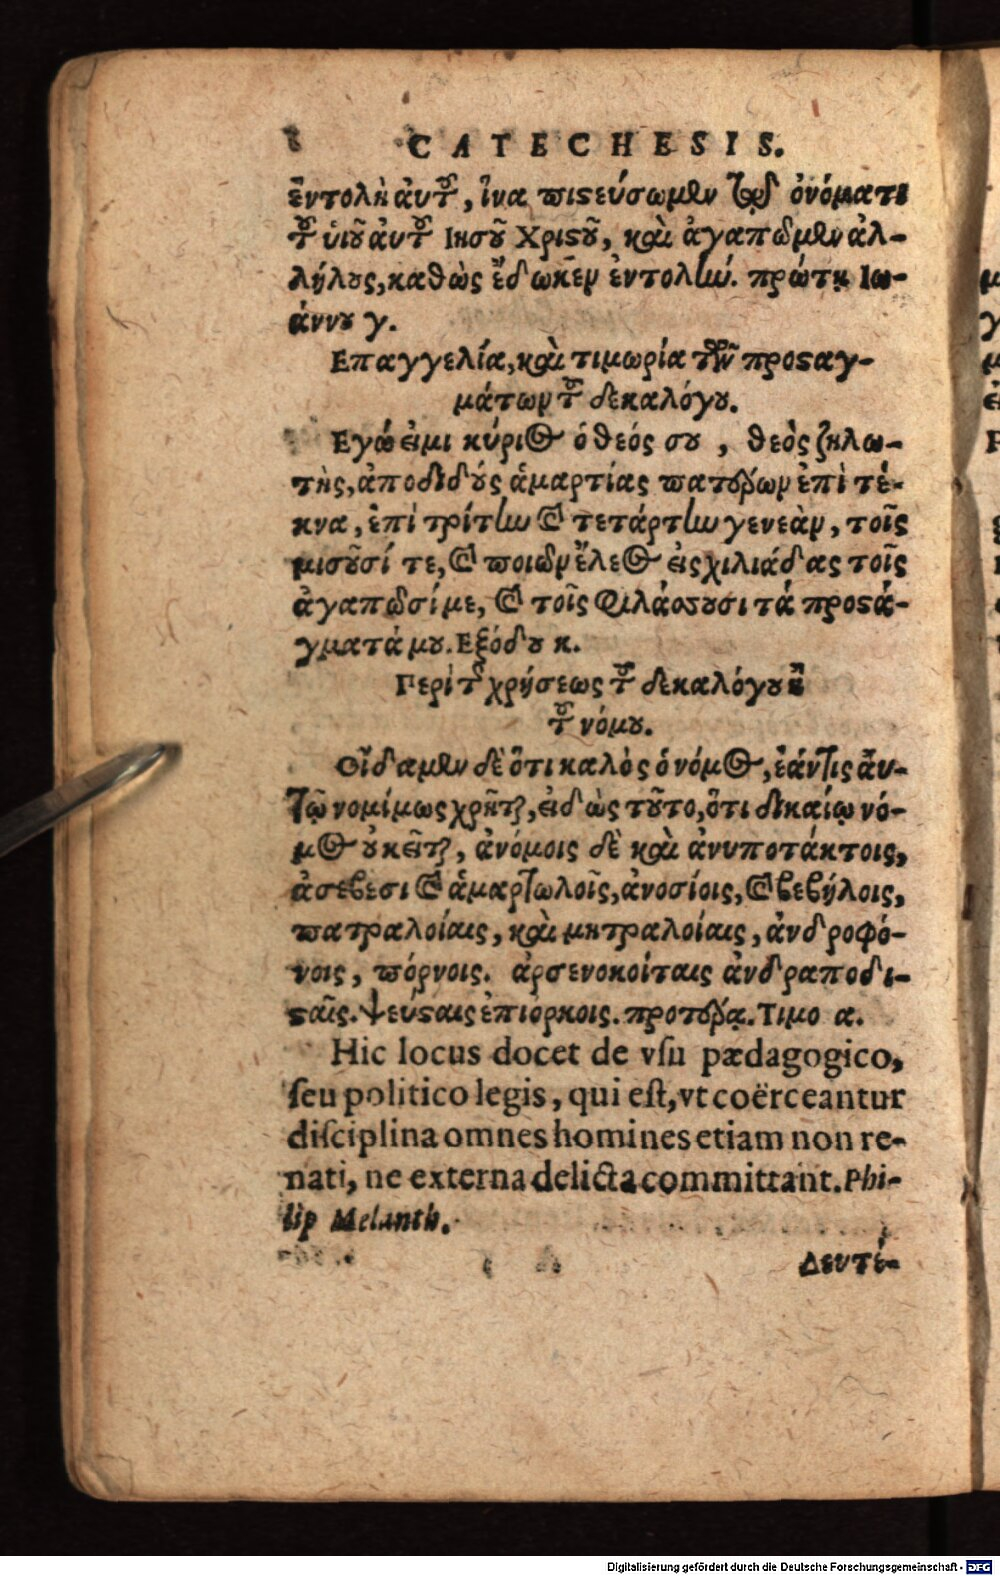 CATECHESIS.
ἐντολὴ ἀυτοῦ, ἵνα πιστεύσωμεν τῷ ὀνόματι
τοῦ ὑιοῦ ἀυτοῦ Ιησοῦ Χριστοῦ, καὶ ἀγαπῶμεν ἀλ-
λήλους, καθὼς ἔδωκεν ἐντολήν. πρώτῃ Ιω-
άννου γ.
Επαγγελία, καὶ τιμωρία τῶν προσταγ-
μάτων τοῦ δεκαλόγου.
Εγώ ἐιμι κύριος ὁ θεός σου, θεὸς ζηλω-
τὴς, ἀποδιδούς ἁμαρτίας πατέρων ἐπὶ τέ-
κνα, ἐπὶ τρίτην καὶ τετάρτην γενεὰν, τοῖς
μισοῦσί τε, καὶ ποιῶν ἔλεος ἐις χιλιάδας τοῖς
ἀγαπῶσί με, καὶ τοῖς φιλάσσουσι τά προστά-
γματά μου. Εξόδου κ.
Περὶ τῆς χρήσεως τοῦ δεκαλόγου ἢ
τοῦ νόμου.
Οἴδαμεν δὲ ὅτι καλὸς ὁ νόμος, ἐάν τις ἀυ-
τῷ νομίμως χρῆται, ἐιδὼς τοῦτο, ὅτι δικαίῳ νό-
μος οὐ κεῖται, ἀνόμοις δὲ καὶ ἀνυποτάκτοις,
ἀσεβεσι καὶ ἁμαρτωλοῖς, ἀνοσίοις, καὶ βεβήλοις,
πατραλοίαις, καὶ μητραλοίαις, ἀνδροφό-
νοις, πόρνοις. ἀρσενοκοίταις ἀνδραποδι-
σταῖς. ψεύσταις ἐπιόρκοις. προτέρᾳ. Τιμο α.
Hic locus docet de vſu pædagogico,
ſeu politico legis, qui eſt, vt coërceantur
diſciplina omnes homines etiam non re-
nati, ne externa delicta committant. Phi-
lip Melanth.
Δευτέ-
Digitalisierung gefördert durch die Deutsche Forschungsgemeinschaft - DFG